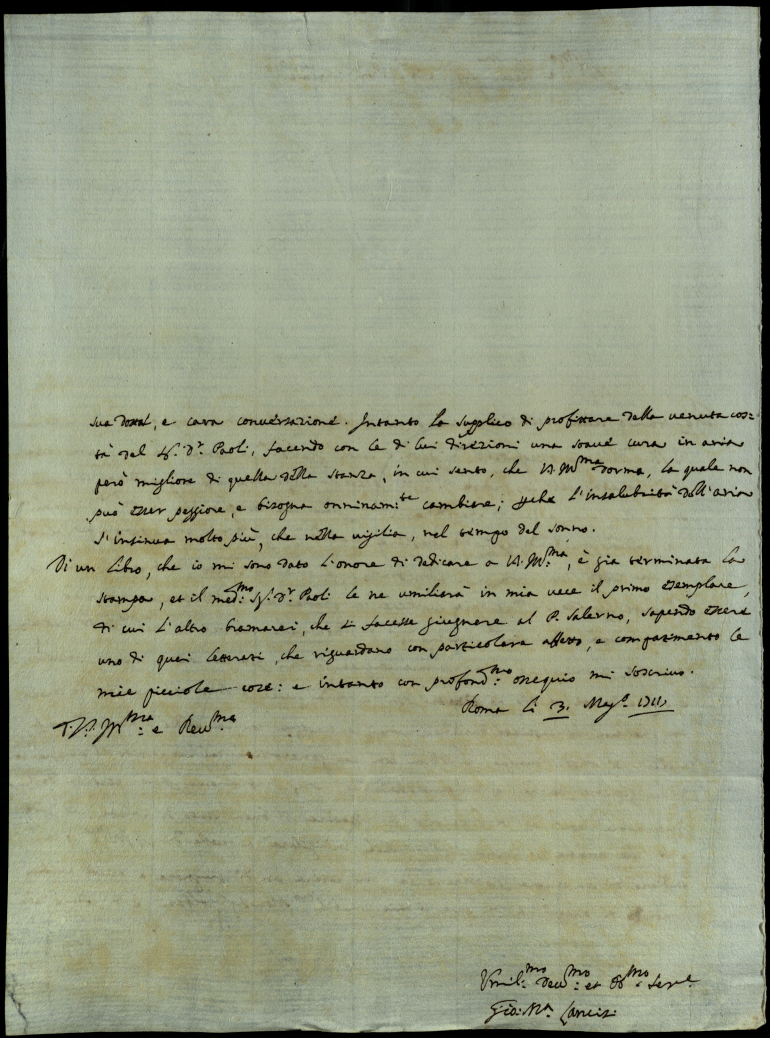 sua dotta, e cara conversazione. Intanto La supplico di profittare della venuta cos=
tà del Sig.r D.r Paoli, facendo con le di lui direzioni una soave cura in aria
però migliore di quella della stanza, in cui sento, che V.S. Ill.ma dorma, la quale non
può esser peggiore, e bisogna onninam.te cambiare; L'insalubrità dell'aria
s'insinua molto più, che nella vigilia, nel tempo del sonno.
Di un Libro, che io mi sono dato L'onore di dedicare a V.S. Ill.ma, è già terminata la
stampa, et il med.mo Sig.r D.r Paoli le ne umiliarà in mia vece il primo esemplare,
di cui L'altro bramarei, che si facesse giugnere al P. Salerno, sapendo essere
uno di quei letterati, che riguardano con particolare affetto, e compatimento le
mie picciole cose: e intanto con profond.mo ossequio mi soscrivo.
Roma li 3. Mag.o 1711
V.S. Ill.ma e Rev.ma
Umil.mo Dev.mo et Obb.mo Serv.e
Gio: M.a Lancisi